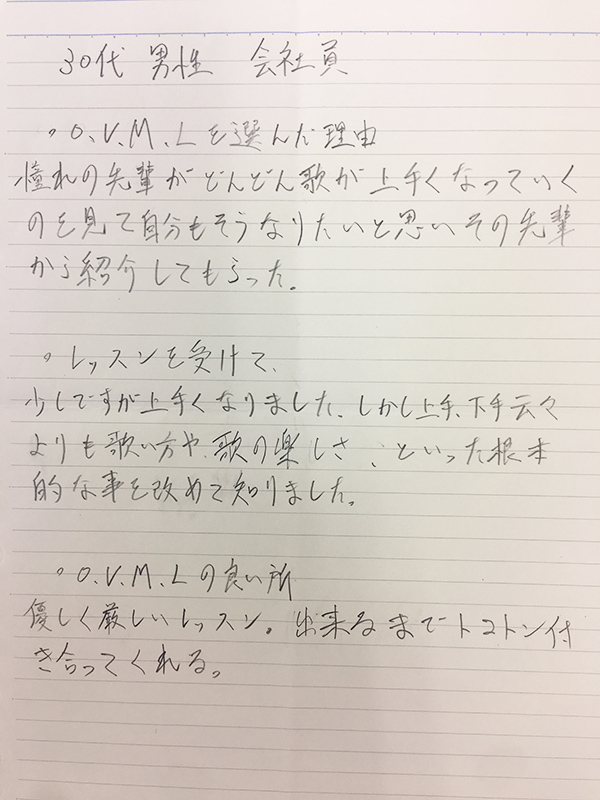 30代 男性 会社員
。O.V.M.Lを選んだ理由
憧れの先輩がどんどん歌が上手くなっていく
のを見て自分もそうなりたいと思いその先輩
から紹介してもらった。
。レッスンを受けて、
少しですが上手くなりました、しかし上手、下手云々
よりも歌い方や、歌の楽しさ、といった根本
的な事を改めて知りました。
。O.V.M.Lの良い所
優しく厳しいレッスン。出来るまでトコトン付
き合ってくれる。